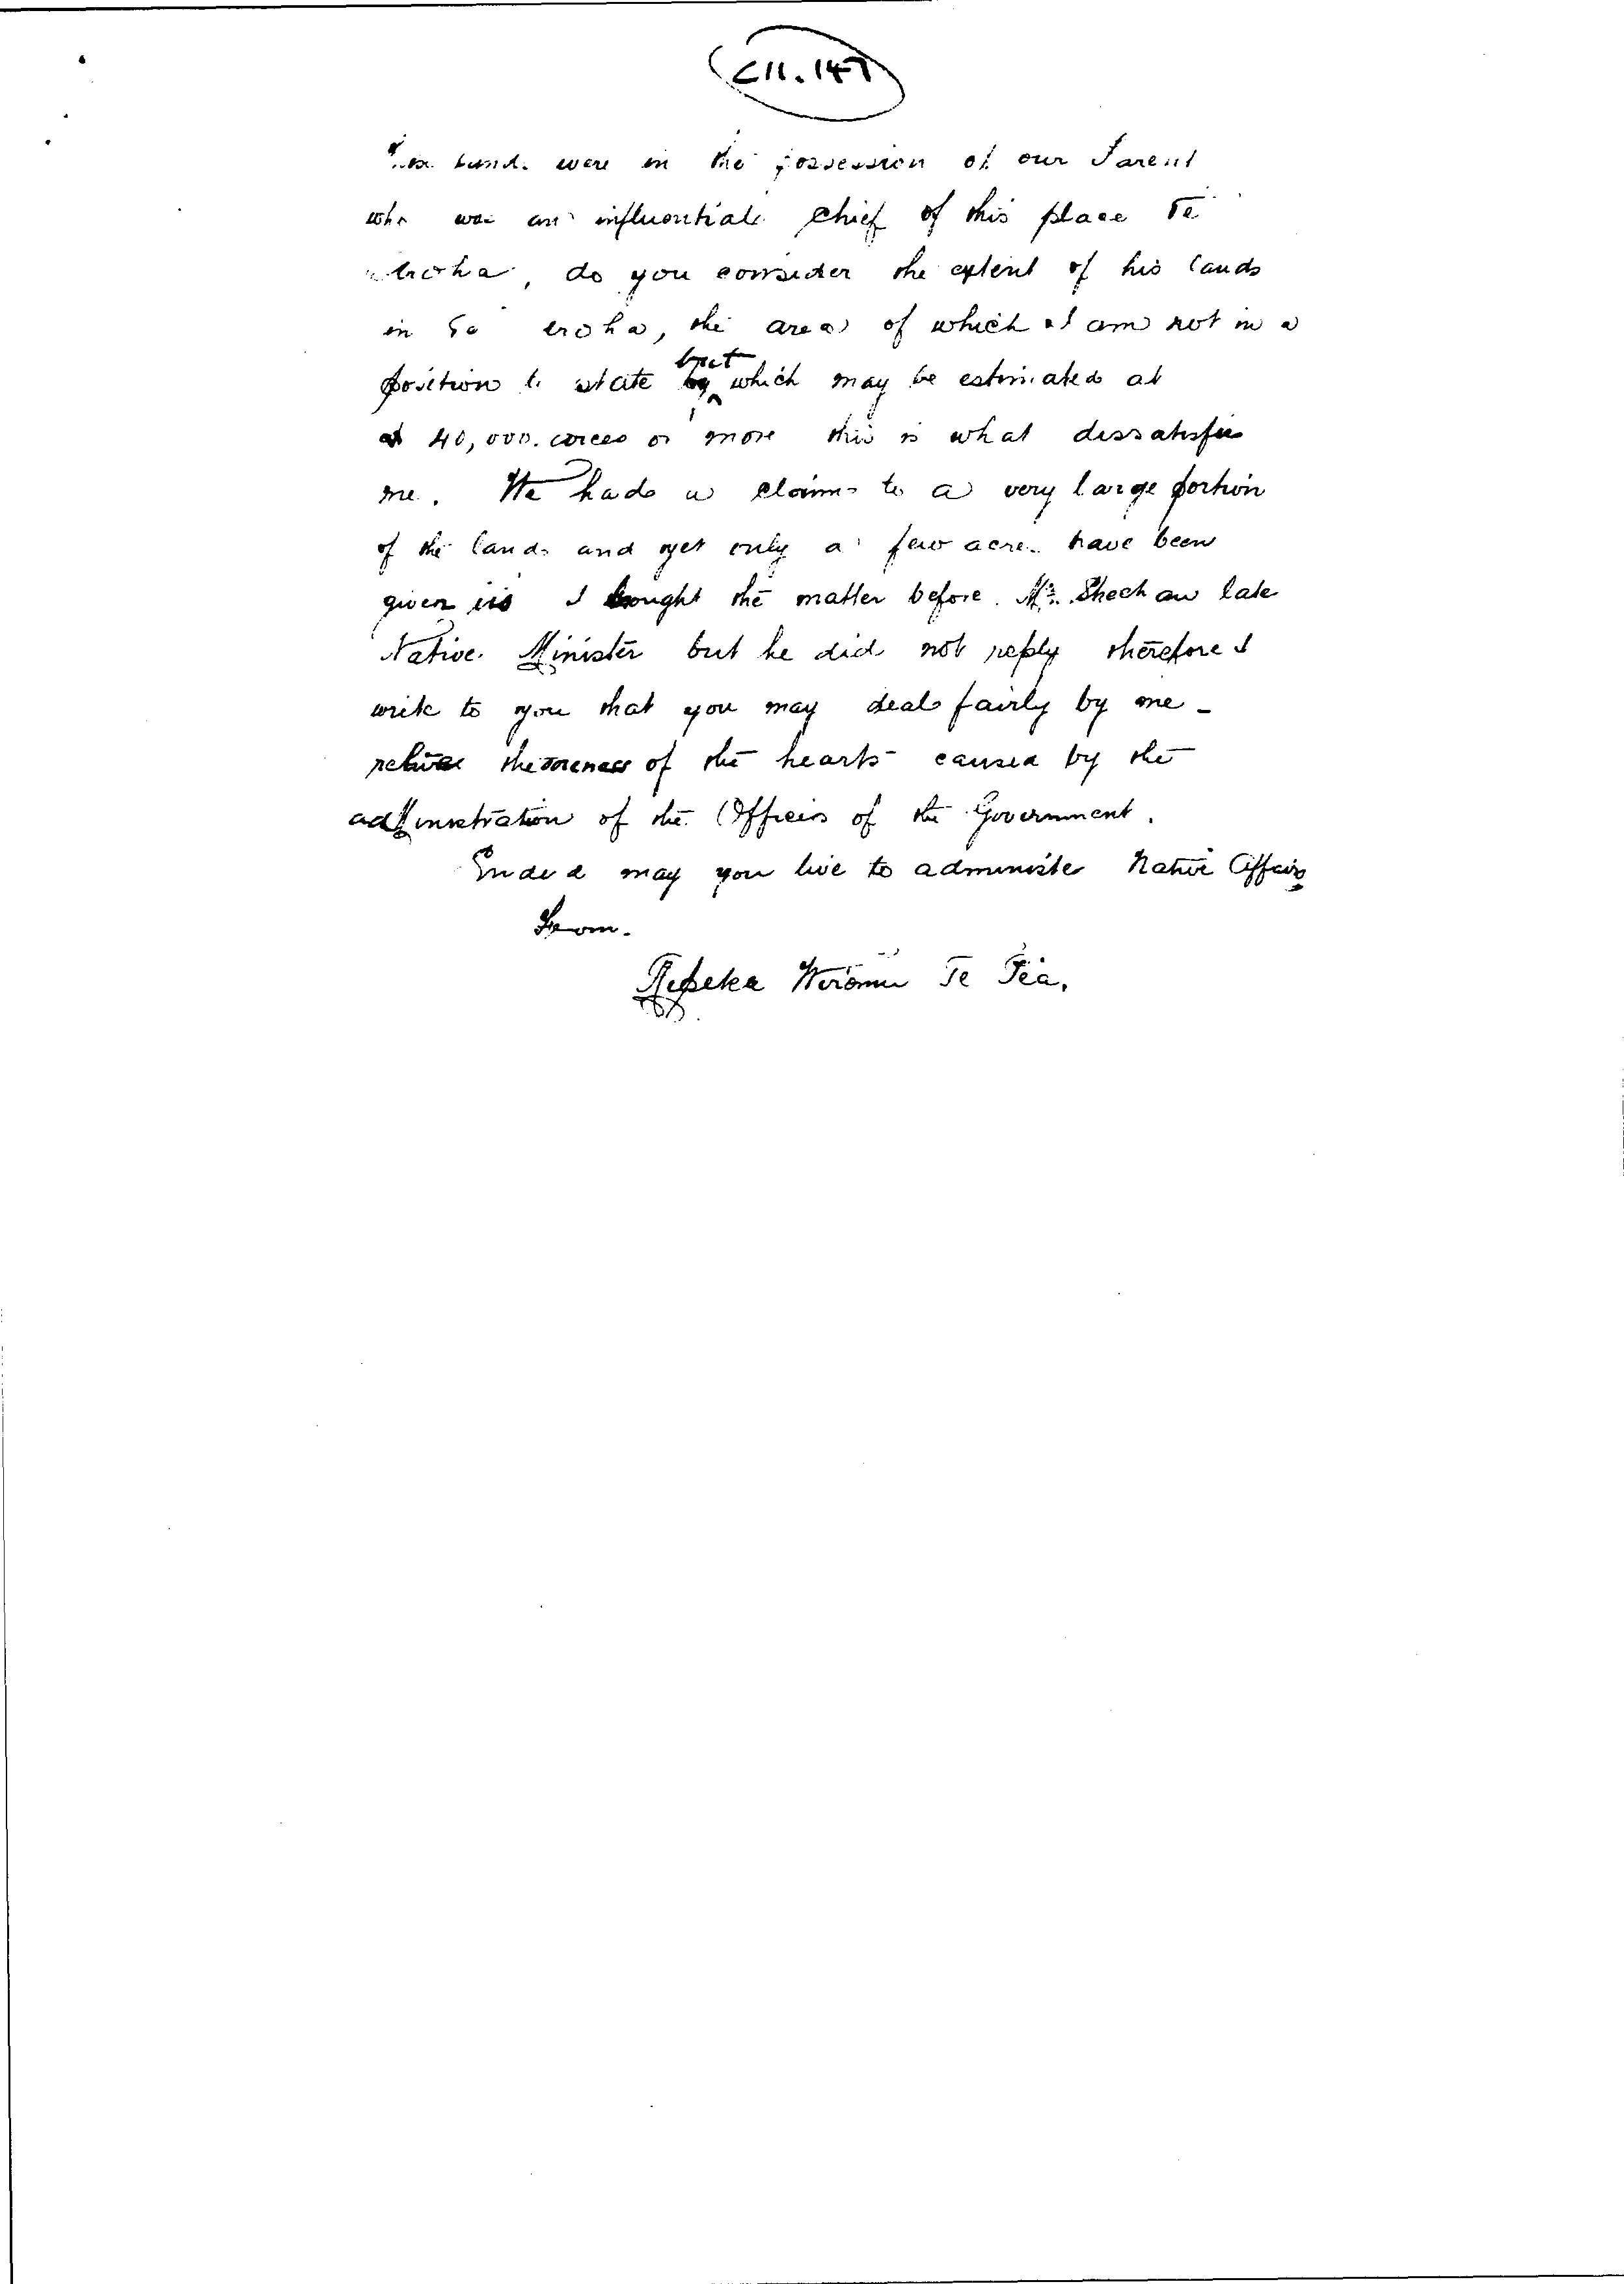 C11.147
lands were in the possession of our Parent
who was an influential chief of this place Te
Aroha, do you consider the extent of his lands
in Te Aroha, the area of which I am not in a
position to state but which may be estimated at
at 40,000. acres or more this is what dissatisfies
me. We had a claim to a very large portion
of the lands and yet only a few acres have been
given us I brought the matter before Mr. Sheehan late
Native Minister but he did not reply therefore I
write to you that you may deal fairly by me -
relieve the soreness of the hearts caused by the
administration of the Officers of the Government.
Ended may you live to administer Native Affairs
From.
Repeka Te Pea.